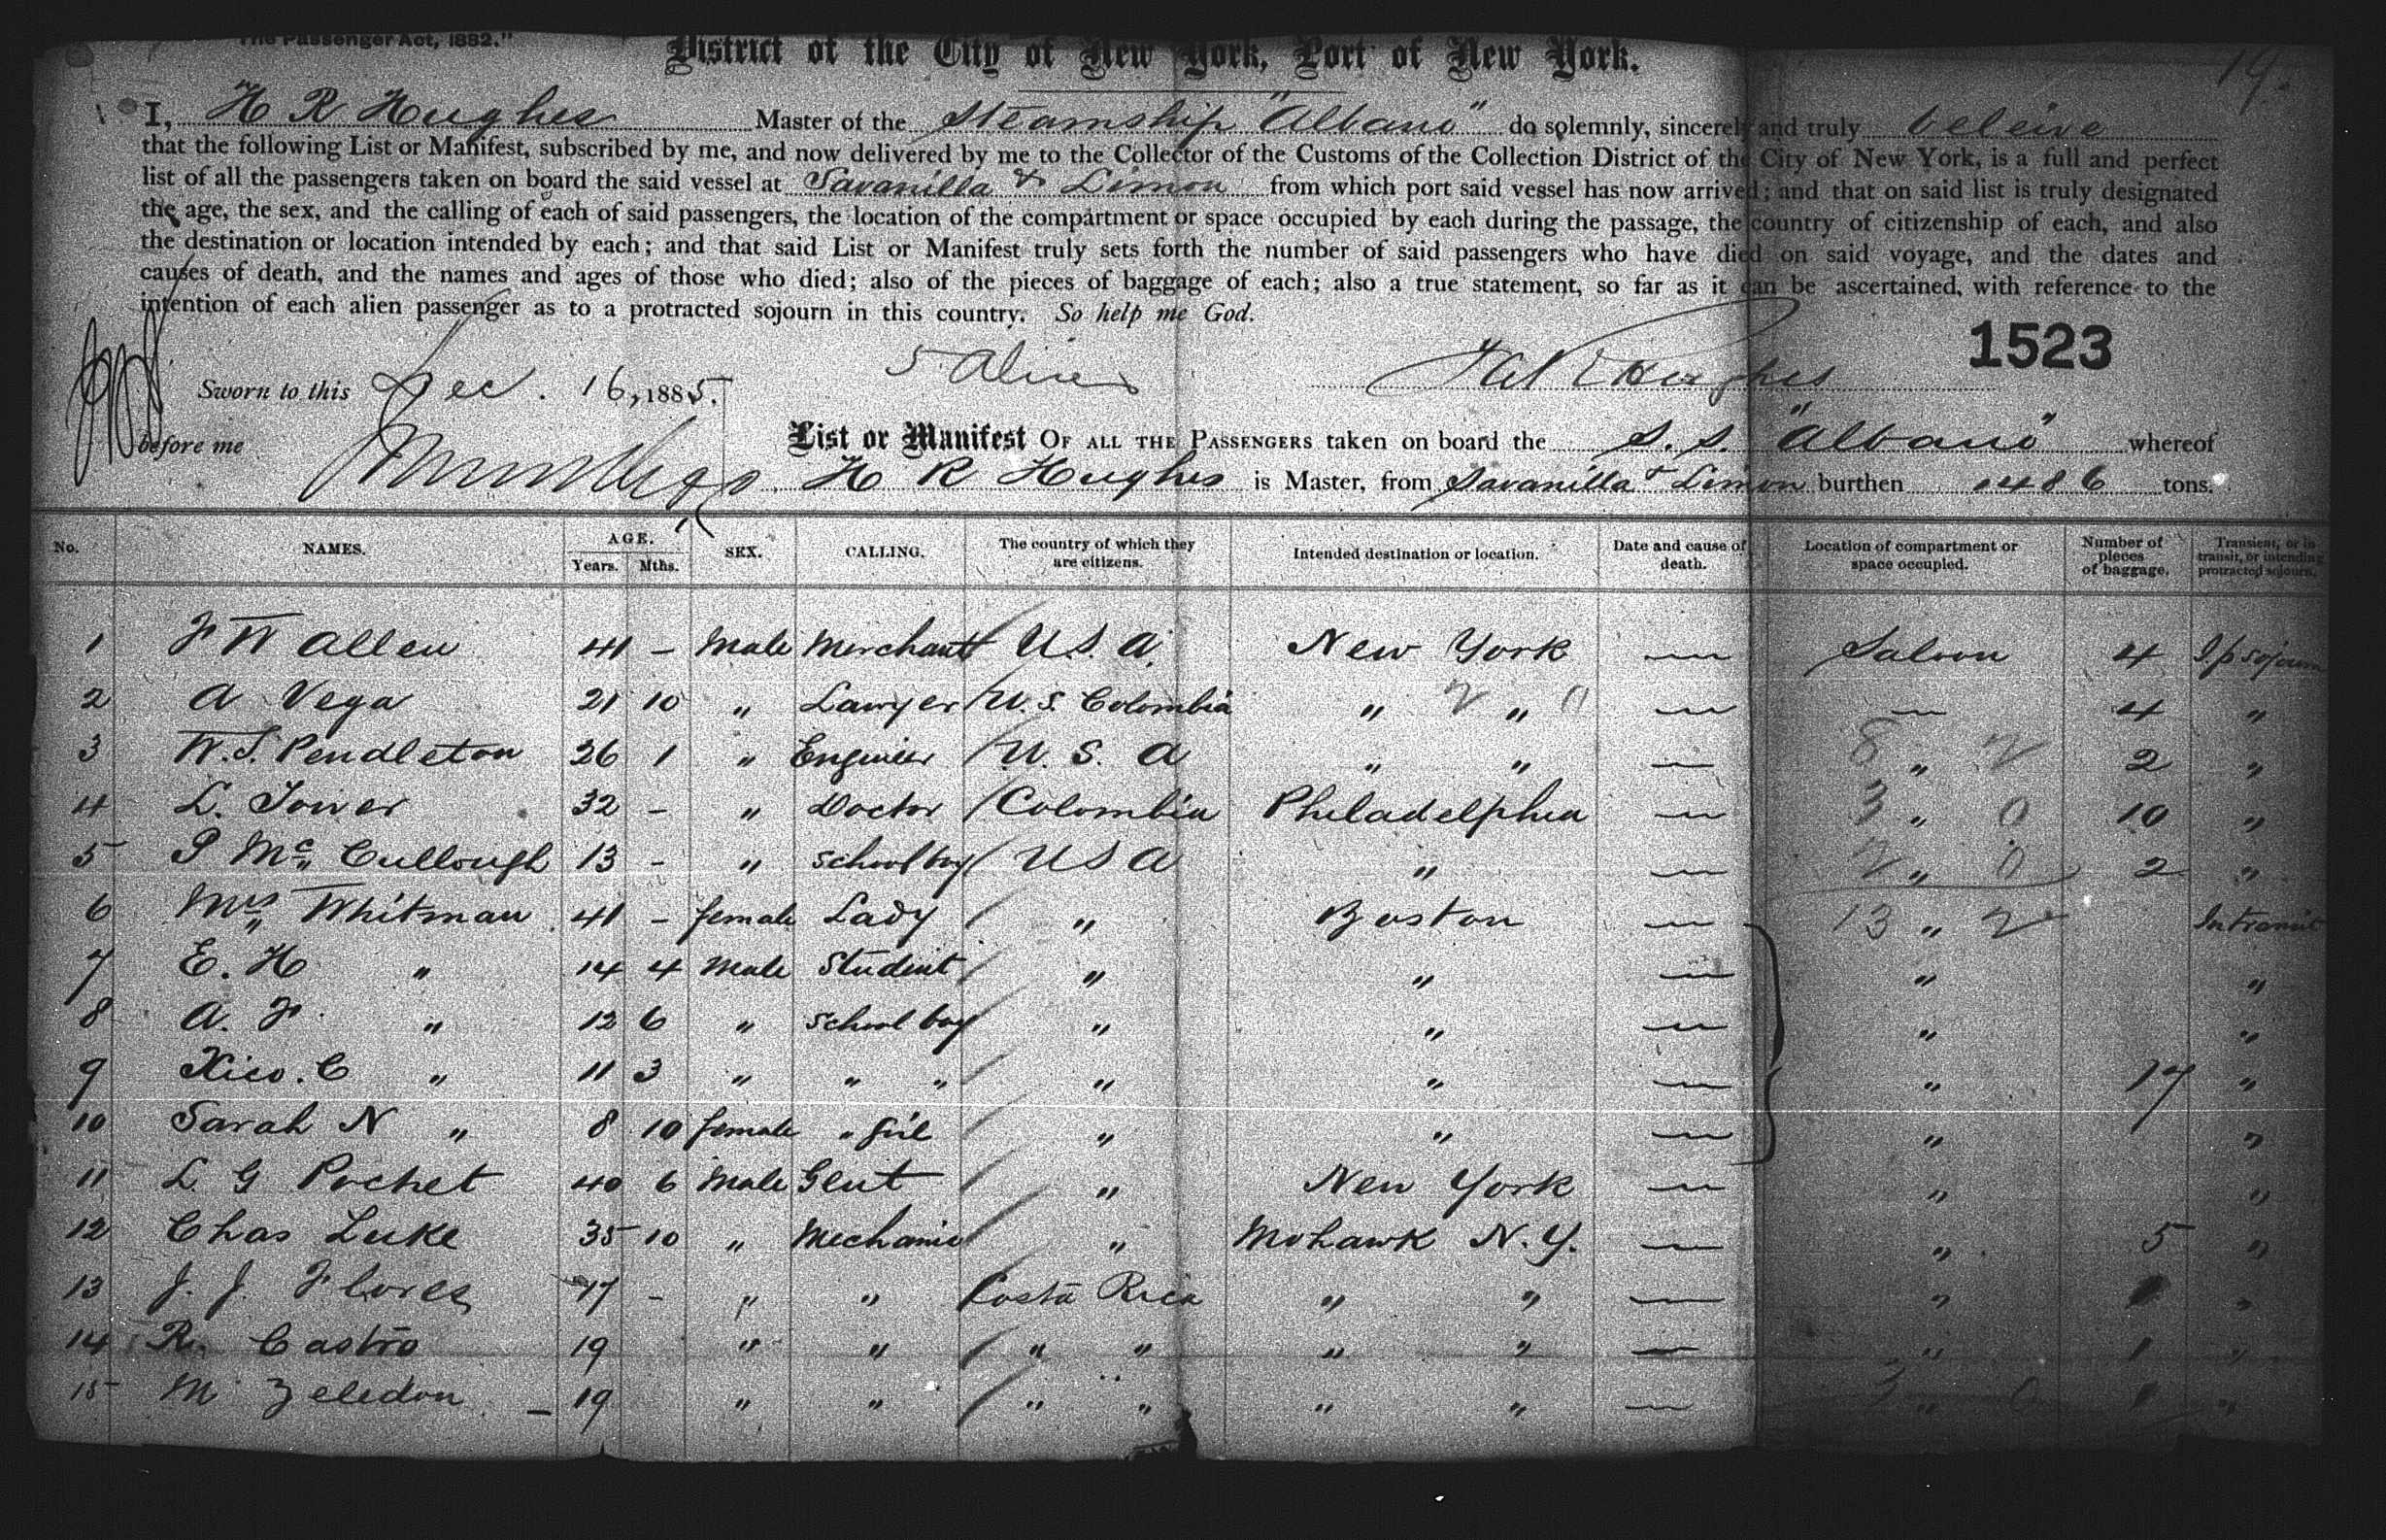 "The Passenger Act, 1882."
District of the City of New York, Port of New York.
19.
I, H R Hughes Master of the Steamship "Albano" do solemnly, sincerely and truly beleive
that the following List or Manifest, subscribed by me, and now delivered by me to the Collector of the Customs of the Collection District of the City of New York, is a full and perfect
list of all the passengers taken on board the said vessel at Savanilla & Limon from which port said vessel has now arrived; and that on said list is truly designated
the age, the sex, and the calling of each of said passengers, the location of the compartment or space occupied by each during the passage, the country of citizenship of each, and also
the destination or location intended by each; and that said List or Manifest truly sets forth the number of said passengers who have died on said voyage, and the dates and
causes of death, and the names and ages of those who died; also of the pieces of baggage of each; also a true statement, so far as it can be ascertained, with reference to the
intention of each alien passenger as to a protracted sojourn in this country. So help me God.
1523
Sworn to this Dec. 16, 1885. 5 Aliens H R Hughes
before me
List or Manifest OF ALL THE PASSENGERS taken on board the S. S. "Albano" whereof
H R Hughes is Master, from Savanilla & Limon burthen 1486 tons.
No. NAMES. AGE. Years. Mths. SEX. CALLING. The country of which they are citizens. Intended destination or location. Date and cause of death. Location of compartment or space occupied. Number of pieces of baggage. Transient, or in transit, or intending protracted sojourn.
1 F W Allen 41 – Male Merchant U.S.A. New York — Saloon 4 I p sojourn
2 A Vega 21 10 " Lawyer U.S. Colombia " 2 " 0 — — 4 "
3 W.S. Pendleton 26 1 " Engineer U. S. A " " — 8 " 2 2 "
4 L. Tower 32 – " Doctor Colombia Philadelphia — 3 " 0 10 "
5 P McCullough 13 – " school boy U S A " — 2 " 0 2 "
6 Mrs Whitman 41 – female Lady " Boston — 13 " 2 Intransit
7 E. H " 14 4 Male Student " " — " "
8 A. F. " 12 6 " school boy " " — " "
9 Xico. C " 11 3 " " " " " — " 17 "
10 Sarah N " 8 10 female " girl " " — " "
11 L G Pochet 40 6 Male Gent " New York — " "
12 Chas Luke 35 10 " Mechanic " Mohawk N.Y. — " 5 "
13 J. J. Flores 47 – " " Costa Rica " " — " 1 "
14 R. Castro 19 " " " " " " — " 1 "
15 M Zeledon – 19 " " " " " " — 3 " 0 1 "